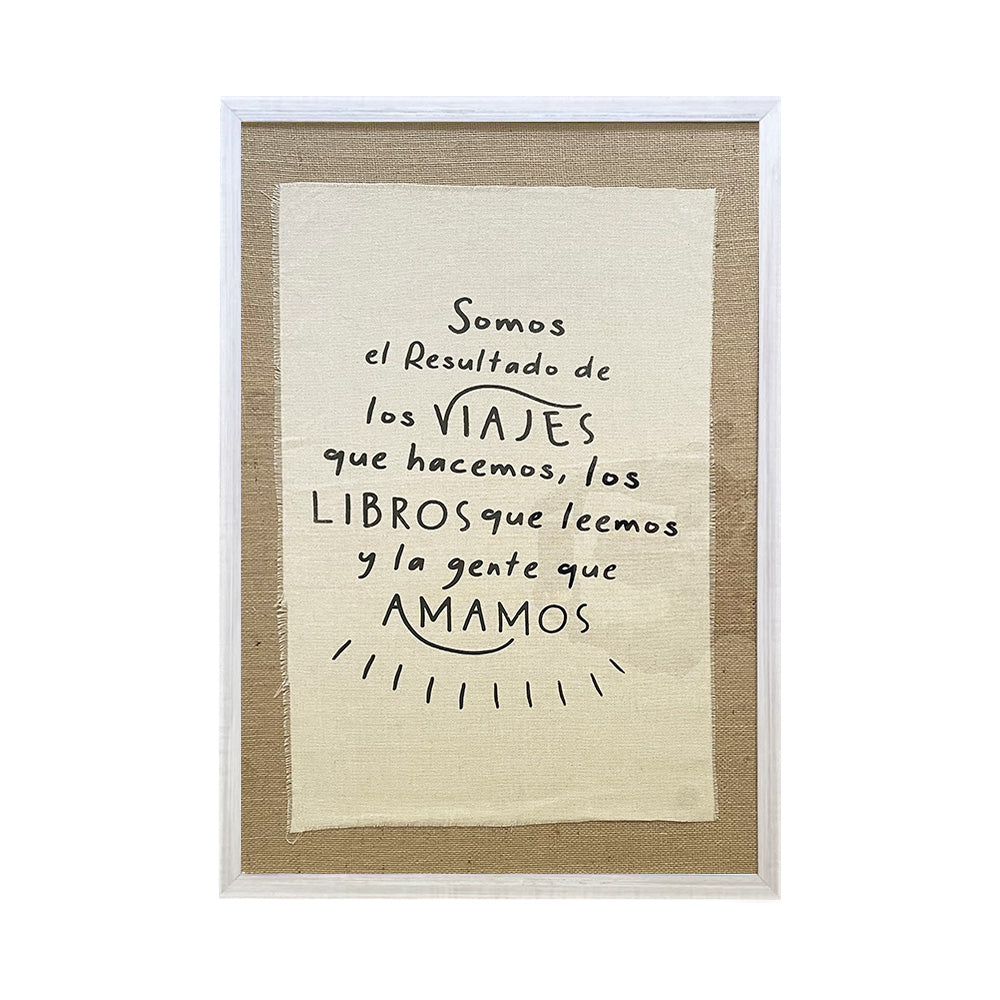 Somos
el Resultado de
los VIAJES
que hacemos, los
LIBROS que leemos
y la gente que
AMAMOS